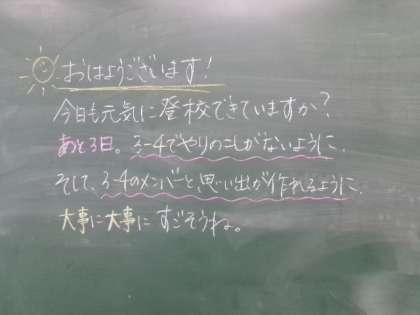 おはようございます!
今日も元気に登校できていますか?
あと3日。3-4でやりのこしがないように、
そして、3-4のメンバーと思い出が作れるように、
大事に大事にすごそうね。